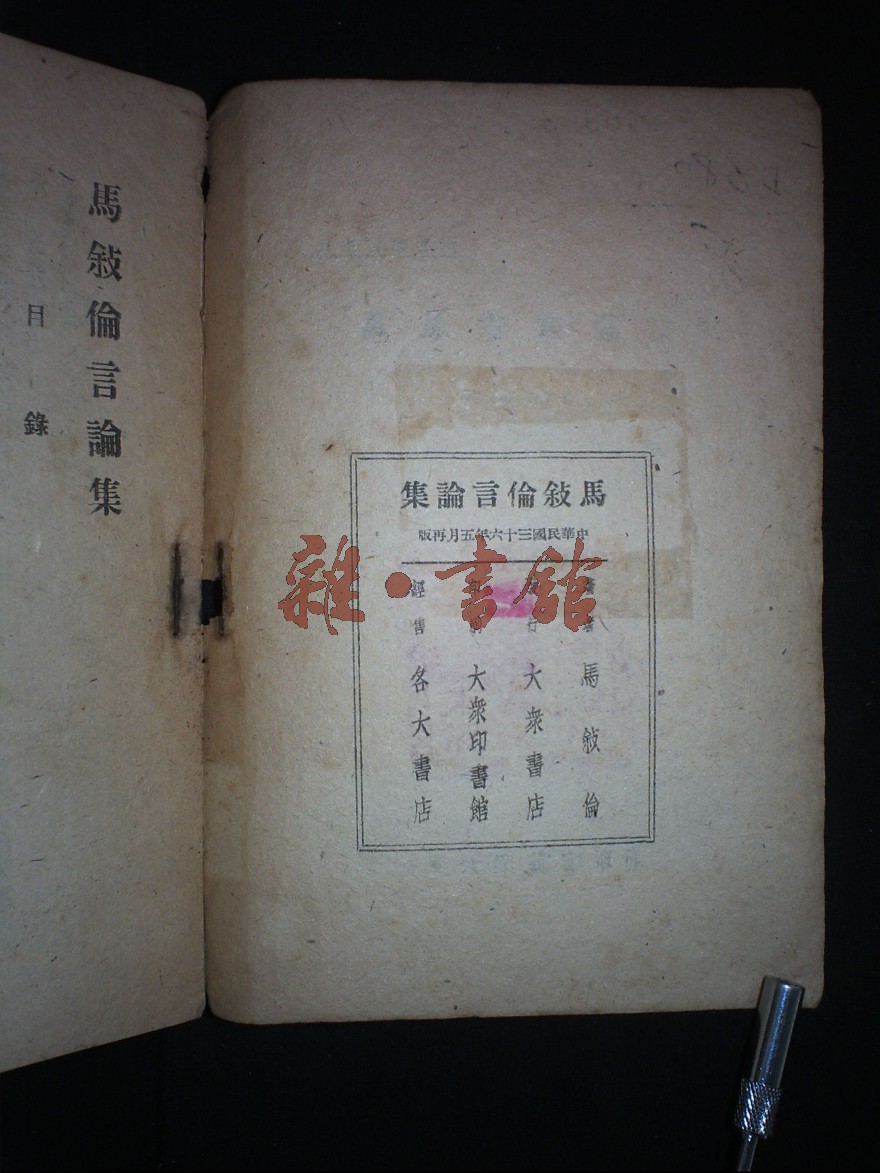 馬敍倫言論集
中華民國三十六年五月再版
馬敍倫
行 大衆書店
大衆印書館
經售 各大書店
馬敍倫言論集
目錄
雜·書館